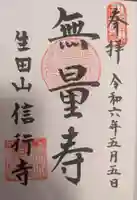 奉拝
令和六年五月五日
無量寿
生田山信行寺